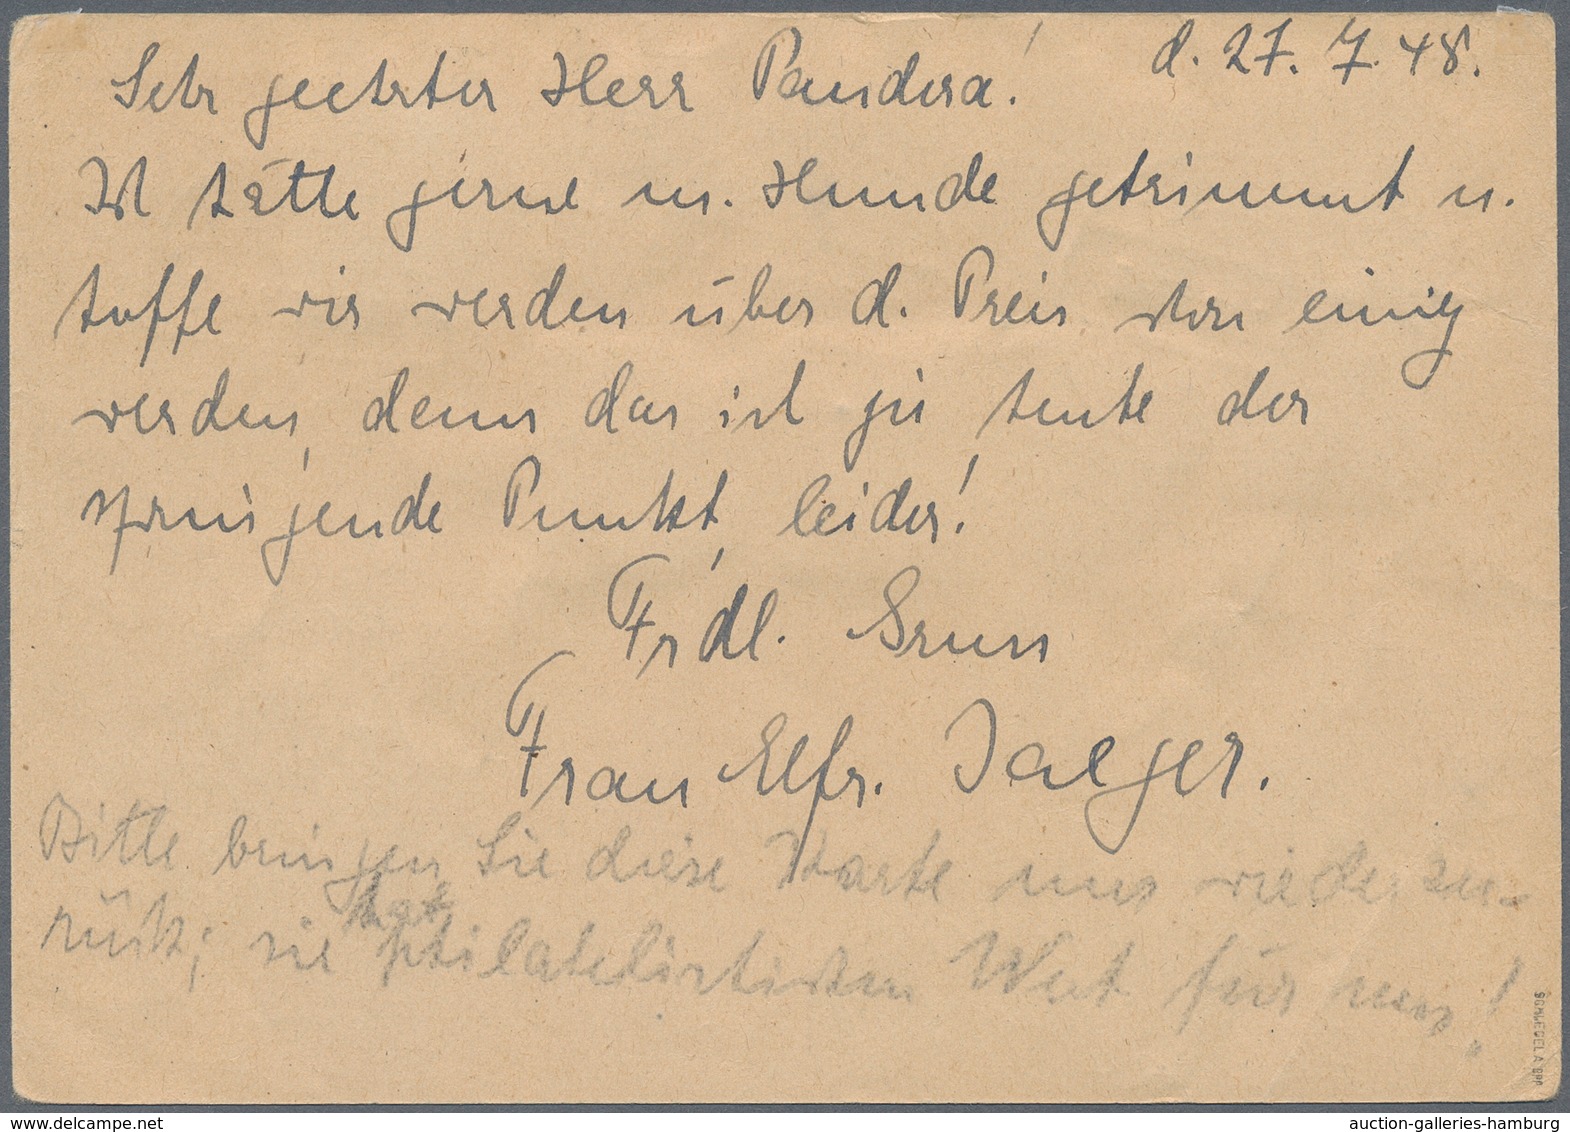 d. 27. 7. 48.
Sehr geehrter Herr Pandera!
Ich hätte gerne m. Hunde getrimmt u.
hoffe wir werden über d. Preis schon einig
werden, denn das ist ja heute der
springende Punkt, leider!
Frdl. Gruss
Frau Elfr. Jaeger.
Bitte bringen Sie diese Karte uns wieder zu-
rück; sie hat philatelistischen Wert für uns!
SCHLEGEL A BPP
auction-galleries-hamburg